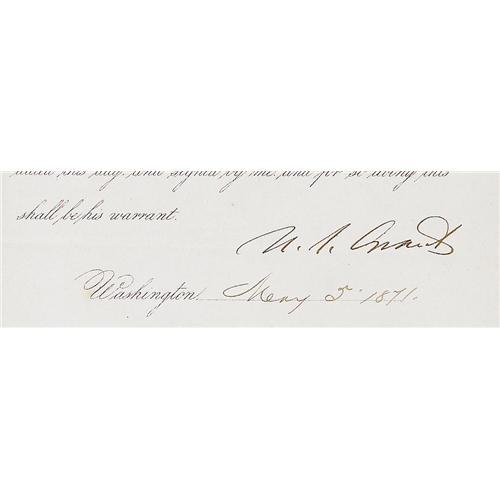 dated this day, and signed by me and for so doing this
shall be his warrant.
U. S. Grant
Washington, May 5. 1871.